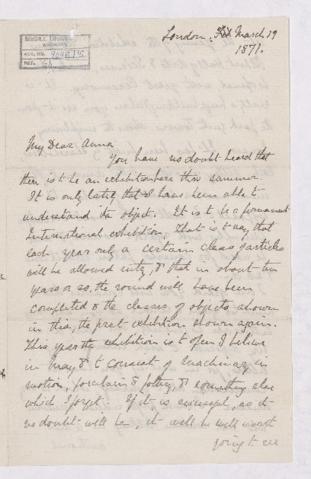 London, March 19
1871.
My Dear Anna
You have no doubt heard that
there is to be an exhibition here this summer.
It is only lately that I have been able to
understand the object. It is to be a permanent
International exhibition, That is to say, that
each year only a certain class of articles
will be allowed entry, & that in about ten
years or so, the round will have been
completed & the classes of objects shown
in this, the first exhibition shown again.
This year the exhibition is to open I believe
in May, & to consist of machinery in
motion, porcelain & pottery, & something else
which I forget. If it is successful, as it
no doubt will be, it will be well worth
going to see